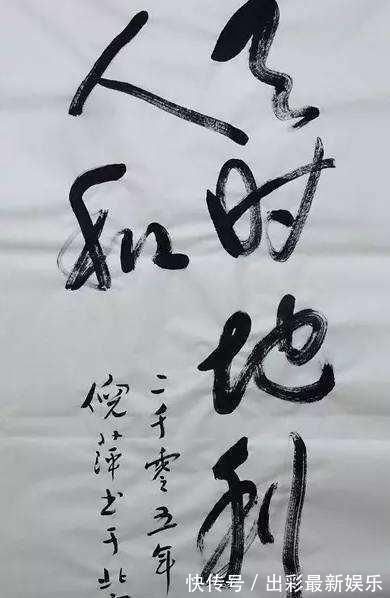 天时地利
人和
二千零五年
倪萍书于北京
快传号 / 出彩最新娱乐